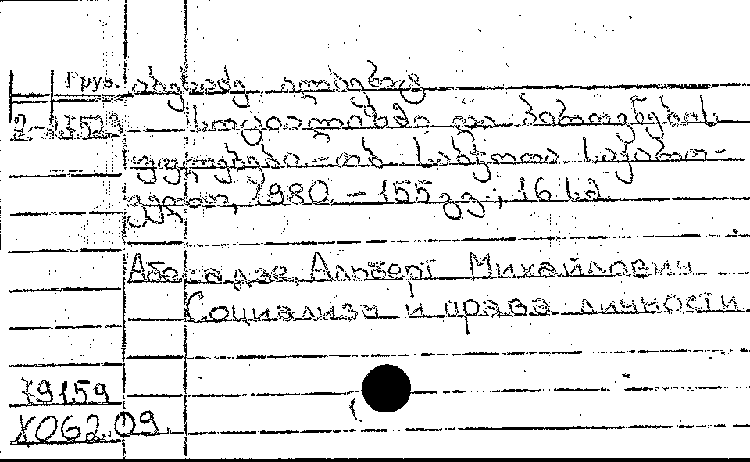 Груз.
2-
სოციალიზმი და პიროვნების
უფლებები. – თბ. საბჭოთა საქართ-
ველო, 1980. – 155 გვ.; 16 სმ.
Альберт Михайлович
Социализм и права личности
79159
X062.09.